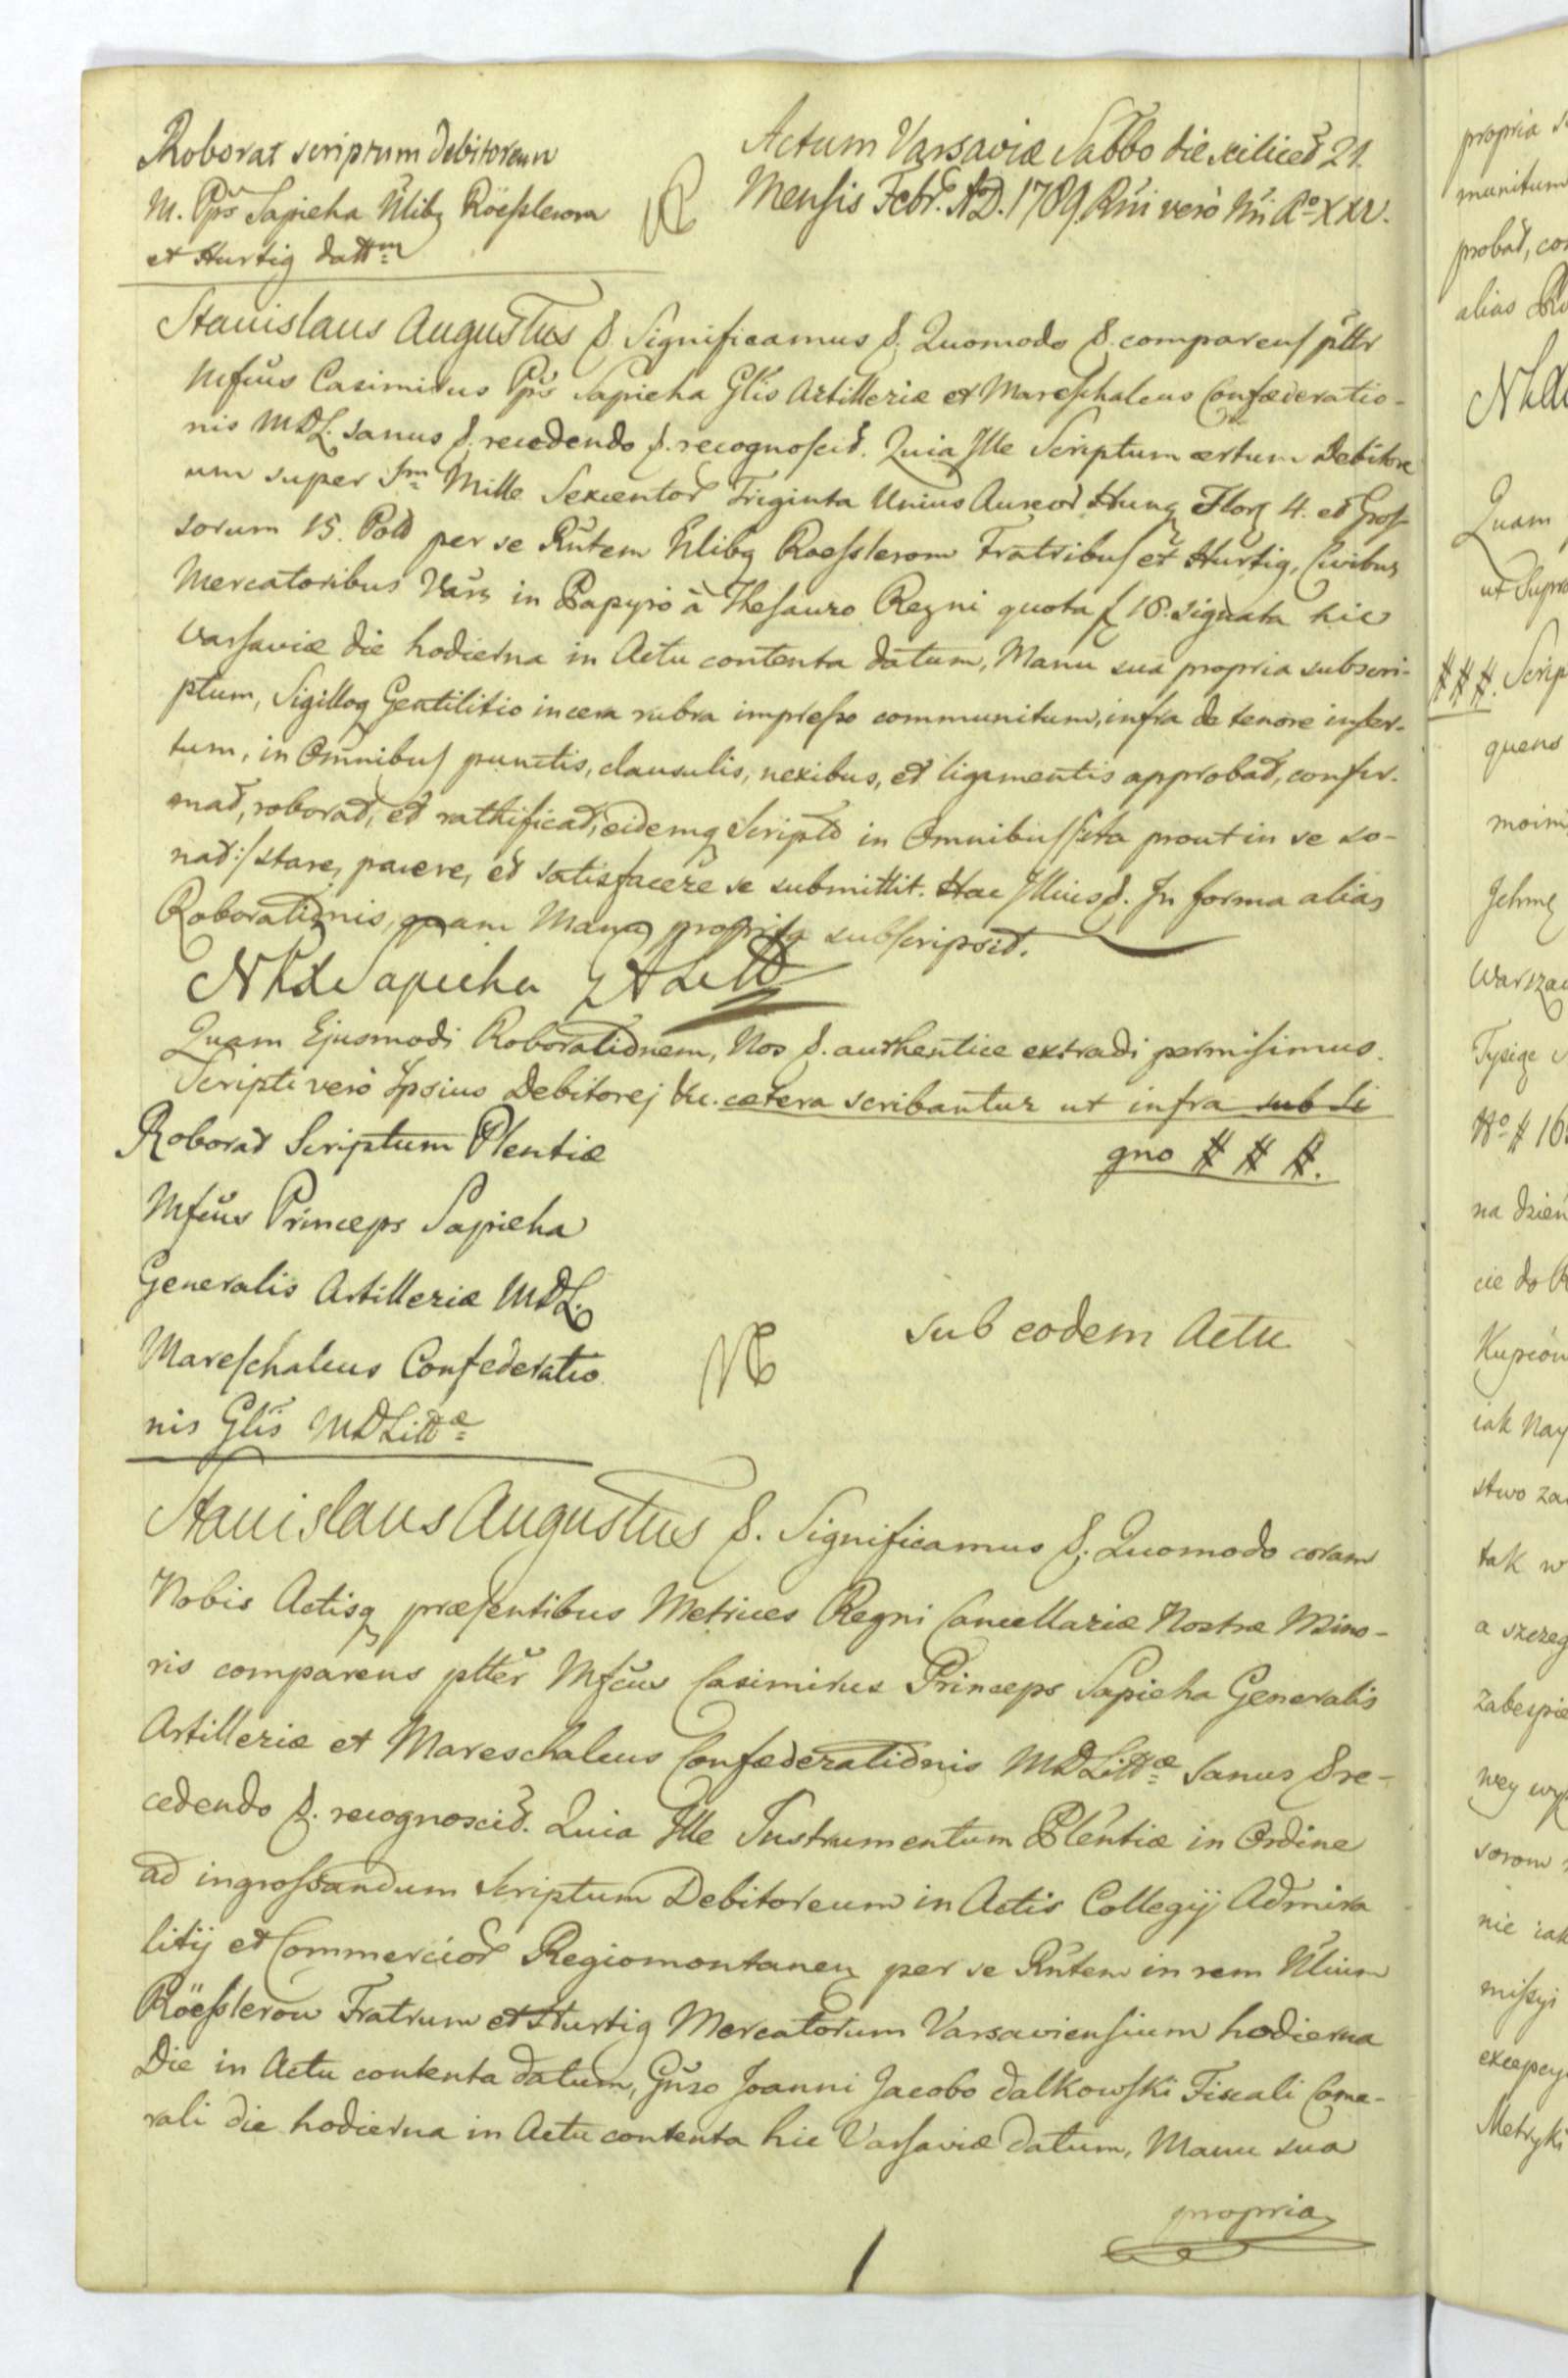 Roborat scriptum debitoreum
M. Pps Sapieha Nlibq Röesslerom
et Hurtig dattm
Actum Varsaviæ Sabbo die scilicet 21.
Mensis Febr. A.D. 1789 Rni vero Nri Ao XXV.
Stanislaus Augustus &. Significamus &. Quomodo &. comparens pttr
Mfcus Casimirus Pps Sapieha Glis Artilleriæ et Mareschalcus Confæderatio-
nis MDL. sanus &. recedendo &. recognoscit. Quia Ille Scriptum certum Debitore
um super Sm Mille Sexcentor Triginta Unius Aureor Hung Flor 4. et Gros-
sorum 15. Pold per se Rntem Nlibq Roesslerom Fratribus et Hurtig, Civibus
Mercatoribus Vars in Papyro à Thesauro Regni quota f 18. signata hic
Varsaviæ die hodierna in Actu contenta datum, Manu sua propria subscri-
ptum, Sigilloq Gentilitio in cera rubra impresso communitum, infra de tenore inser-
tum, in Omnibus punctis, clausulis, nexibus, et ligamentis approbat, confir-
mat, roborat, et rathificat, eidemq Scripto in Omnibus /:ita prout in se so-
nat:/ stare, parere, et satisfacere se submittit. Hac Illius &. In forma alias
Roborationis, quam Manu propria subscripsit.
Sapieha
Quam Ejusmodi Roborationem, Nos &. authentice extradi permisimus.
Scripti vero Ipsius Debitorej &c. cætera scribantur ut infra sub si
gno # # #.
Roborat Scriptum Plentiæ
Mfcus Princeps Sapieha
Generalis Artilleriæ MDL.
Mareschalcus Confederatio
nis Glis MDLittæ
Sub eodem Actu
Stanislaus Augustus &. Significamus &. Quomodo coram
Nobis Actisq præsentibus Metrices Regni Cancellariæ Nostræ Mino-
ris comparens ptter Mfcus Casimirus Princeps Sapieha Generalis
Artilleriæ et Mareschalcus Confæderationis MDLittæ Sanus &. re-
cedendo &. recognoscit. Quia Ille Instrumentum Plentiæ in Ordine
ad ingrossandum Scriptum Debitoreum in Actis Collegij Admira
litij et Commercior Regiomontanen per se Rntem in rem Nlium
Röesslerow Fratrum et Hurtig Mercatorum Varsaviensium hodierna
Die in Actu contenta datum, Gnso Joanni Jacobo Dalkowski Fiscali Came-
rali die hodierna in Actu contenta hic Varsaviæ datum, Manu sua
propria
propria
munitum
probat, con
alias
Quam
ut Supra
# # #. Scrip
quens
moim
Warszaw
No # 16
na dzień
cie do
Kupców
iak Nay
stwo za
tak w
a szczeg
zabespie
nie iak
missyi
Metryki